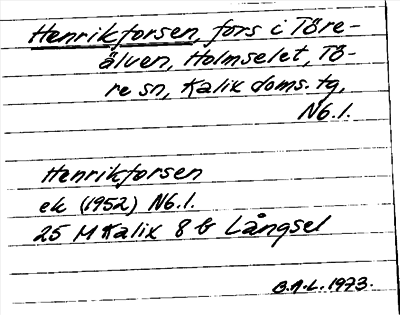 Henrikforsen, fors i Töre-
älven, Holmselet, Tö-
re sn, Kalix doms. tg,
N6.1.
Henrikforsen
ek (1952) N6.1.
25 M Kalix 8 b Långsel
B.A.L. 1973.